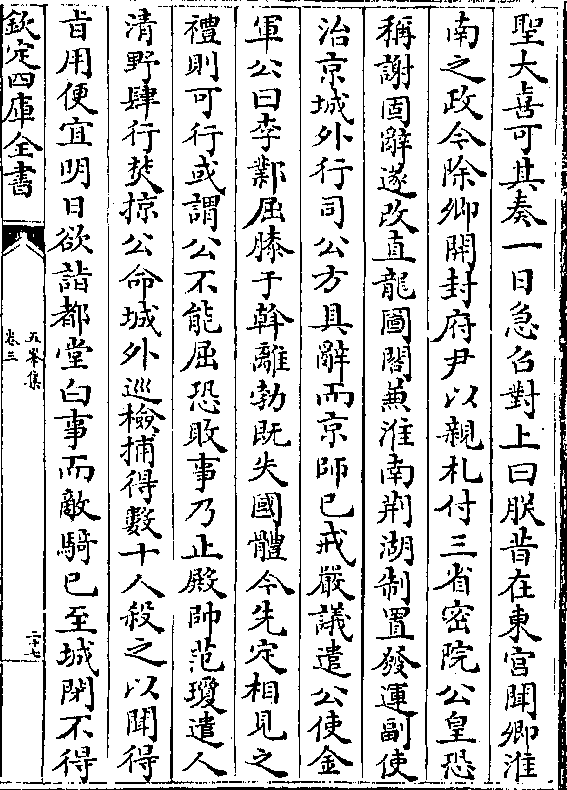 聖大喜可其奏一日急召對上曰朕昔在東宮聞卿淮
南之政今除卿開封府尹以親札付三省密院公皇恐
稱謝固辭遂改直龍圖閣兼淮南荆湖制置發運副使
治京城外行司公方具辭而京師已戒嚴議遣公使金
軍公曰李鄴屈膝于斡離勃既失國體今先定相見之
禮則可行或謂公不能屈恐敗事乃止殿帥范瓊遣人
清野肆行焚掠公命城外巡檢捕得數十人殺之以聞得
旨用便宜明日欲詣都堂白事而敵騎已至城閉不得
欽定四庫全書
五峯集
卷三
二十七